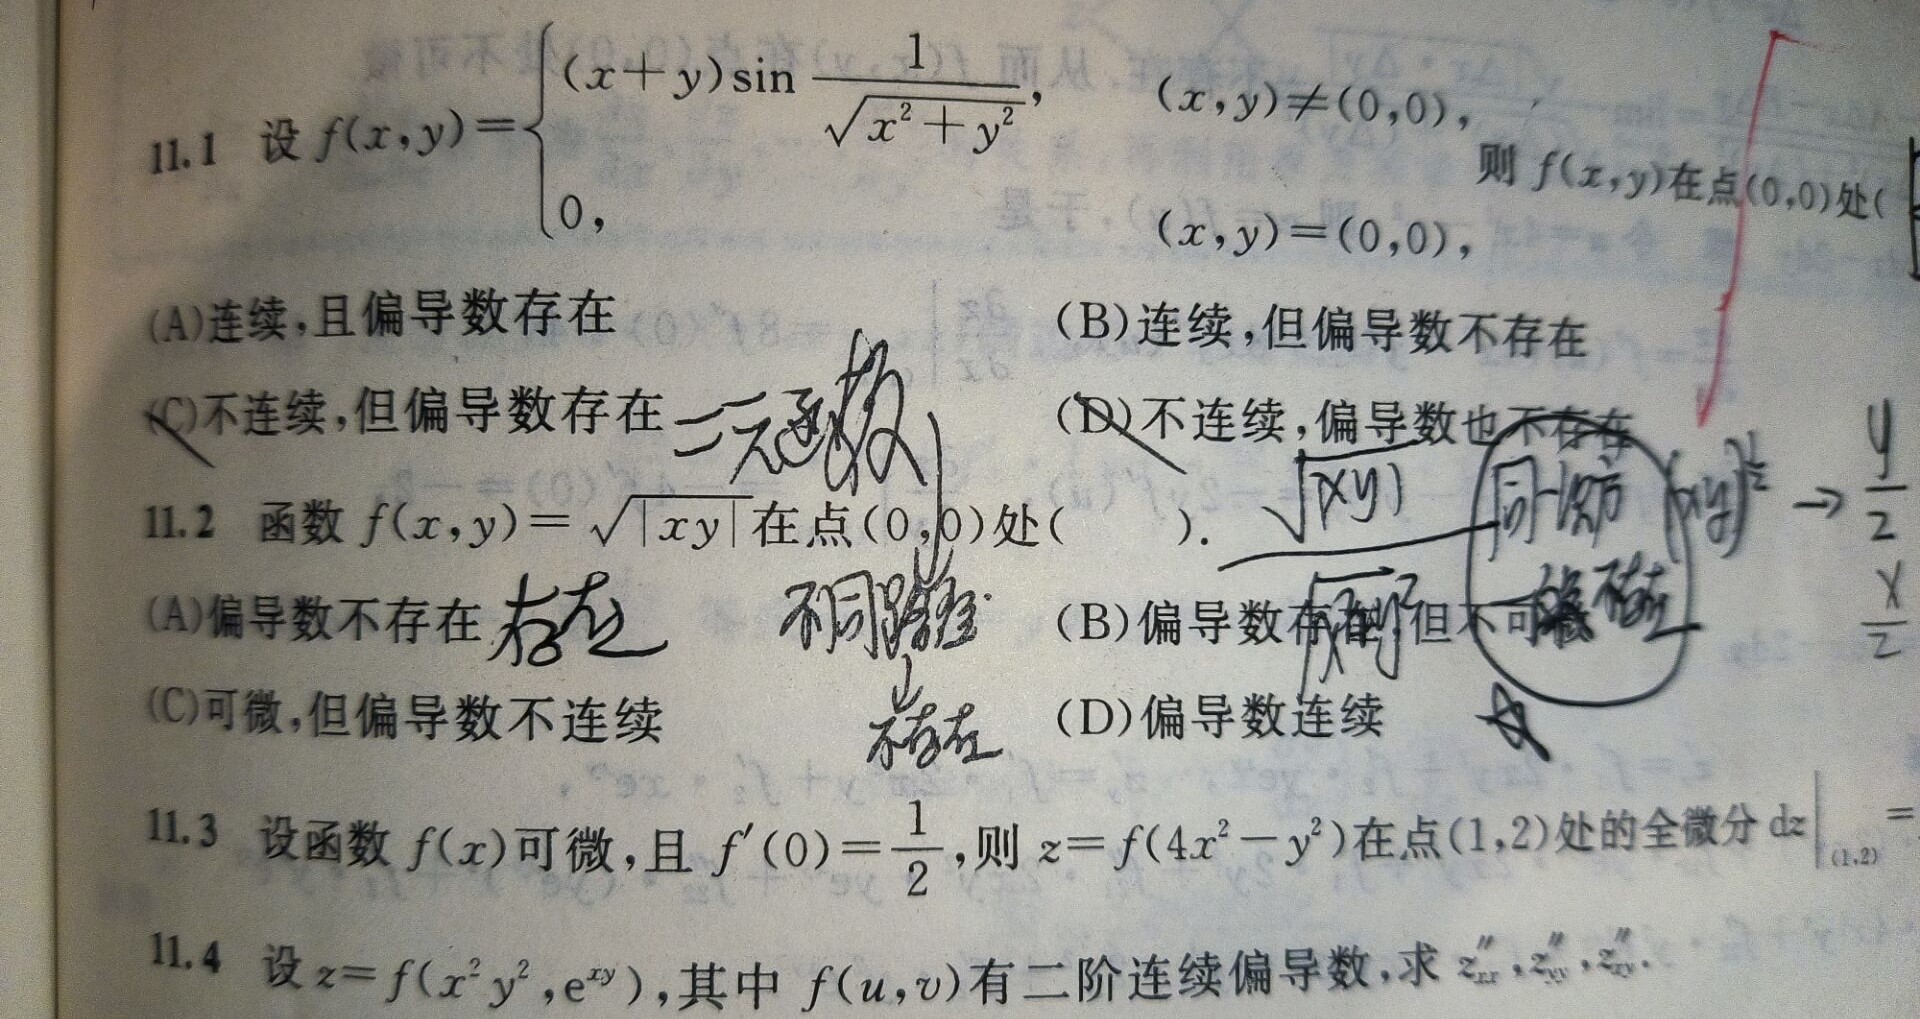 11.1 设 f(x,y)={(x+y)sin 1/√(x²+y²), (x,y)≠(0,0),
0, (x,y)=(0,0), 则 f(x,y)在点(0,0)处(
(A)连续,且偏导数存在 (B)连续,但偏导数不存在
(C)不连续,但偏导数存在 二元函数 (D)不连续,偏导数也不存在
√|xy| (xy)^½ → y/2
11.2 函数 f(x,y)=√|xy|在点(0,0)处( ).
x/2
(A)偏导数不存在 存在 不同路径 (B)偏导数存在,但不可微 不存在
(C)可微,但偏导数不连续 不存在 (D)偏导数连续
11.3 设函数 f(x)可微,且 f′(0)=1/2,则 z=f(4x²−y²)在点(1,2)处的全微分 dz|(1,2) =
11.4 设 z=f(x²y²,e^xy),其中 f(u,v)有二阶连续偏导数,求 z″xx,z″yy,z″xy.